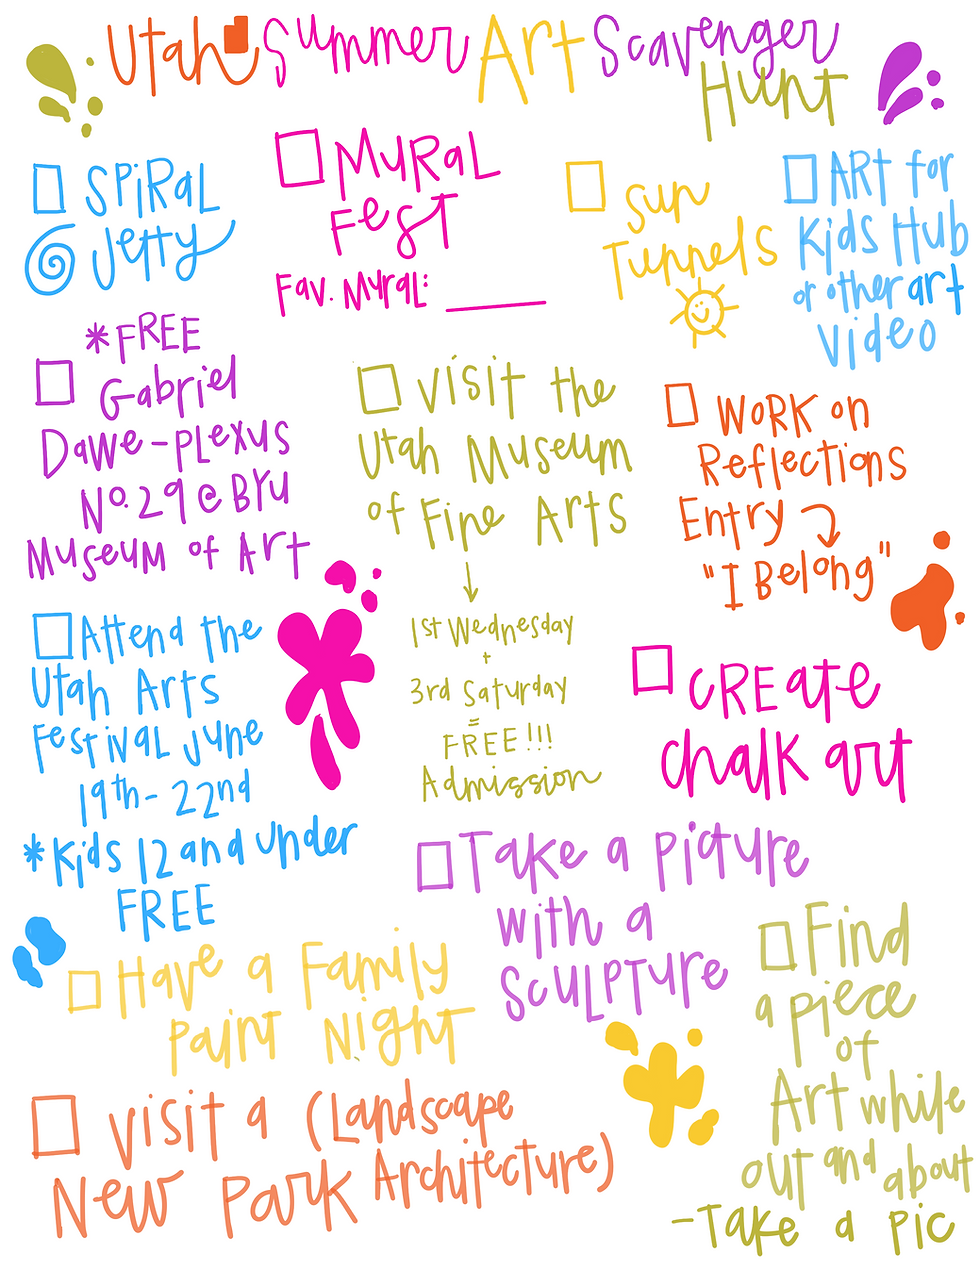 Utah Summer Art Scavenger
Hunt
SPiRaL
Jetty
MuRaL
FesT
Fav. MuraL: ______
Sun
Tunnels
ART for
Kids Hub
or other art
Video
*FREE
Gabriel
Dawe-pLexus
No. 29 @ BYU
Museum of Art
Visit the
Utah Museum
of Fine Arts
1st Wednesday
+
3rd Saturday
=
FREE!!!
Admission
WORK on
Reflections
Entry
"I Belong"
Attend the
Utah Arts
Festival June
19th-22nd
*Kids 12 and under
FREE
CREate
chalk art
Take a picture
with a
Sculpture
Have a Family
paint Night
Find
a piece
of
Art while
out and about
-Take a pic
Visit a (Landscape
New Park Architecture)